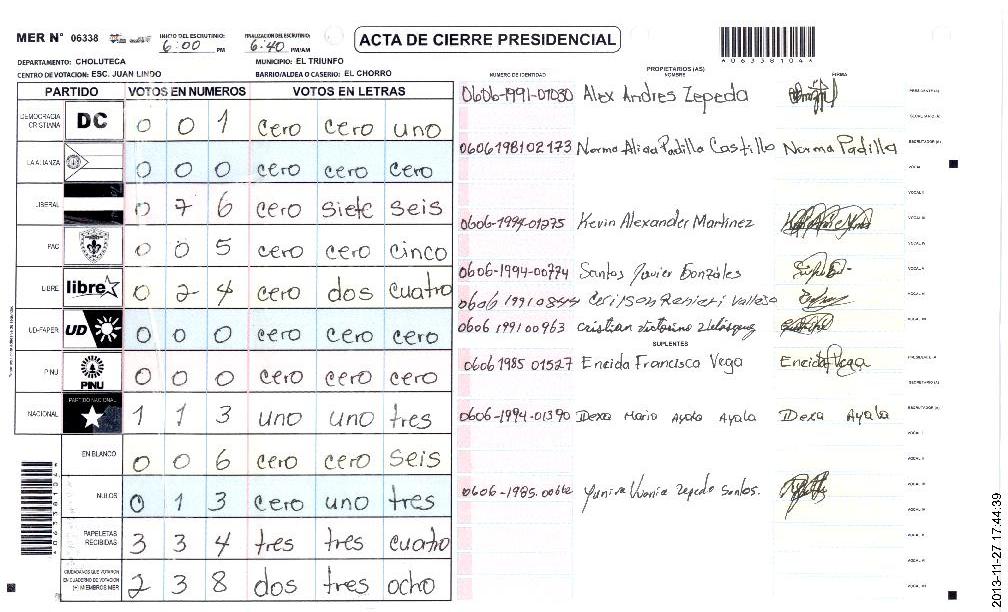 MER N° 06338 INICIO DEL ESCRUTINIO: 6:00 PM FINALIZACION DEL ESCRUTINIO: 6:40 PM/AM
ACTA DE CIERRE PRESIDENCIAL
DEPARTAMENTO: CHOLUTECA MUNICIPIO: EL TRIUNFO
CENTRO DE VOTACION: ESC. JUAN LINDO BARRIO/ALDEA O CASERIO: EL CHORRO
PARTIDO VOTOS EN NUMEROS VOTOS EN LETRAS
DEMOCRACIA CRISTIANA DC 0 0 1 cero cero uno
LA ALIANZA 0 0 0 cero cero cero
LIBERAL 0 7 6 cero siete seis
PAC 0 0 5 cero cero cinco
LIBRE libre 0 2 4 cero dos cuatro
UD-FAPER UD 0 0 0 cero cero cero
PINU PINU 0 0 0 cero cero cero
NACIONAL PARTIDO NACIONAL 1 1 3 uno uno tres
EN BLANCO 0 0 6 cero cero seis
NULOS 0 1 3 cero uno tres
PAPELETAS RECIBIDAS 3 3 4 tres tres cuatro
CIUDADANOS QUE VOTARON EN CUADERNO DE VOTACION (+) MIEMBROS MER 2 3 8 dos tres ocho
PROPIETARIOS (AS)
NUMERO DE IDENTIDAD NOMBRE FIRMA
0606-1991-01030 Alex Andres Zepeda
0606198102173 Norma Alicia Padilla Castillo Norma Padilla
0606-1994-01275 Kevin Alexander Martinez
0606-1994-00774 Santos Javier Gonzáles
0606 1991 00963 Cristian Victorino Velásquez
SUPLENTES
0606 1985 01527 Eneida Francisco Vega Eneida Vega
0606-1994-01390 Dexa Maria Ayala Ayala Dexa Ayala
Zepeda Santos.
2013-11-27 17:44:39